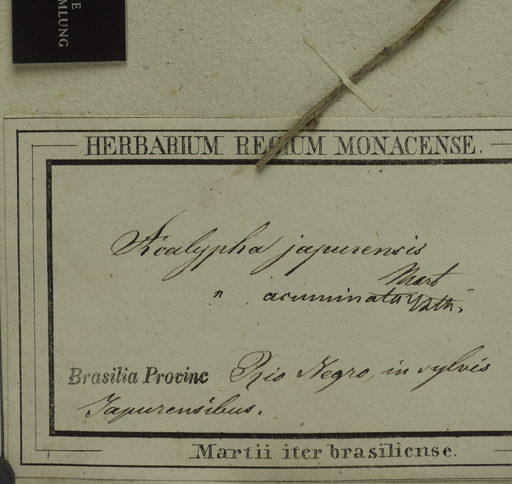 E
MLUNG
HERBARIUM REGIUM MONACENSE.
Acalypha japurensis
Mart
" acuminata
Brasilia Provinc Rio Negro, in sylvis
Japurensibus.
Martii iter brasiliense.